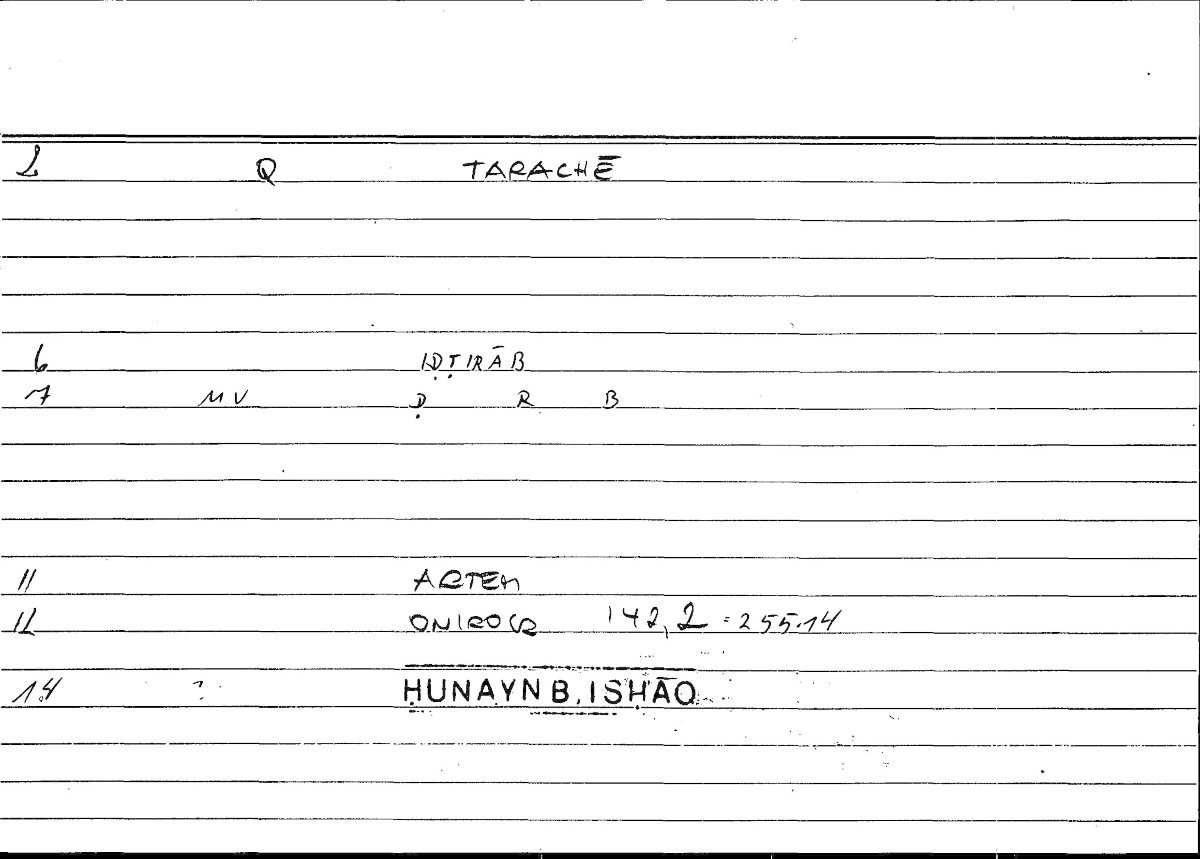 2 Q TARACHĒ
6 IḌṬIRĀB
7 MV Ḍ R B
11 ARTEM
12 ONIROCR 142,2 = 255.14
14 ḤUNAYN B. ISḤĀQ